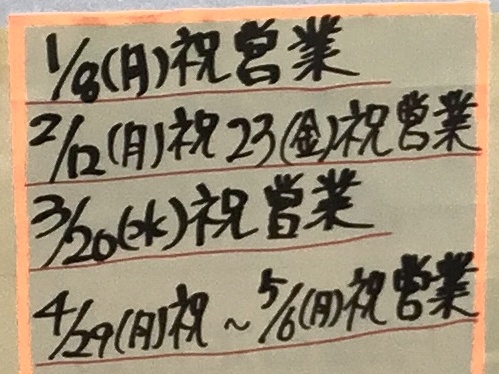 1/8(月)祝営業
2/12(月)祝23(金)祝営業
3/20(水)祝営業
4/29(月)祝～5/6(月)祝営業